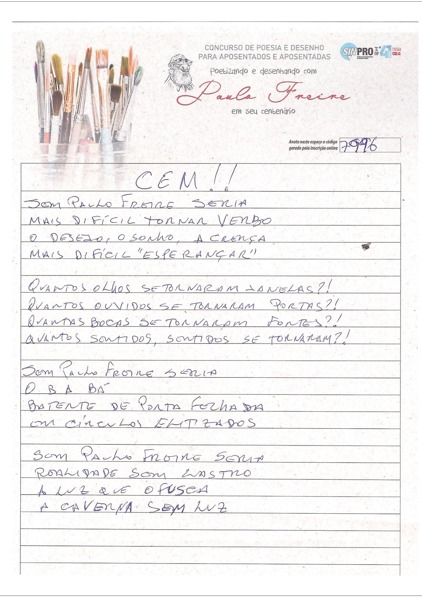 CONCURSO DE POESIA E DESENHO
PARA APOSENTADOS E APOSENTADAS
Poetizando e desenhando com
Paulo Freire
em seu centenário
SINPRO
Anote neste espaço o código
gerado pela inscrição online
7996
CEM!!
SEM PAULO FREIRE SERIA
MAIS DIFÍCIL TORNAR VERBO
O DESEJO, O SONHO, A CRENÇA
MAIS DIFÍCIL "ESPERANÇAR"
QUANTOS OLHOS SE TORNARAM JANELAS?!
QUANTOS OUVIDOS SE TORNARAM PORTAS?!
QUANTAS BOCAS SE TORNARAM FONTES?!
QUANTOS SENTIDOS, SENTIDOS SE TORNARAM?!
SEM PAULO FREIRE SERIA
O B A BÁ
BATENTE DE PORTA FECHADA
EM CÍRCULOS ELITIZADOS
SEM PAULO FREIRE SERIA
REALIDADE SEM LASTRO
A LUZ QUE OFUSCA
A CAVERNA SEM LUZ